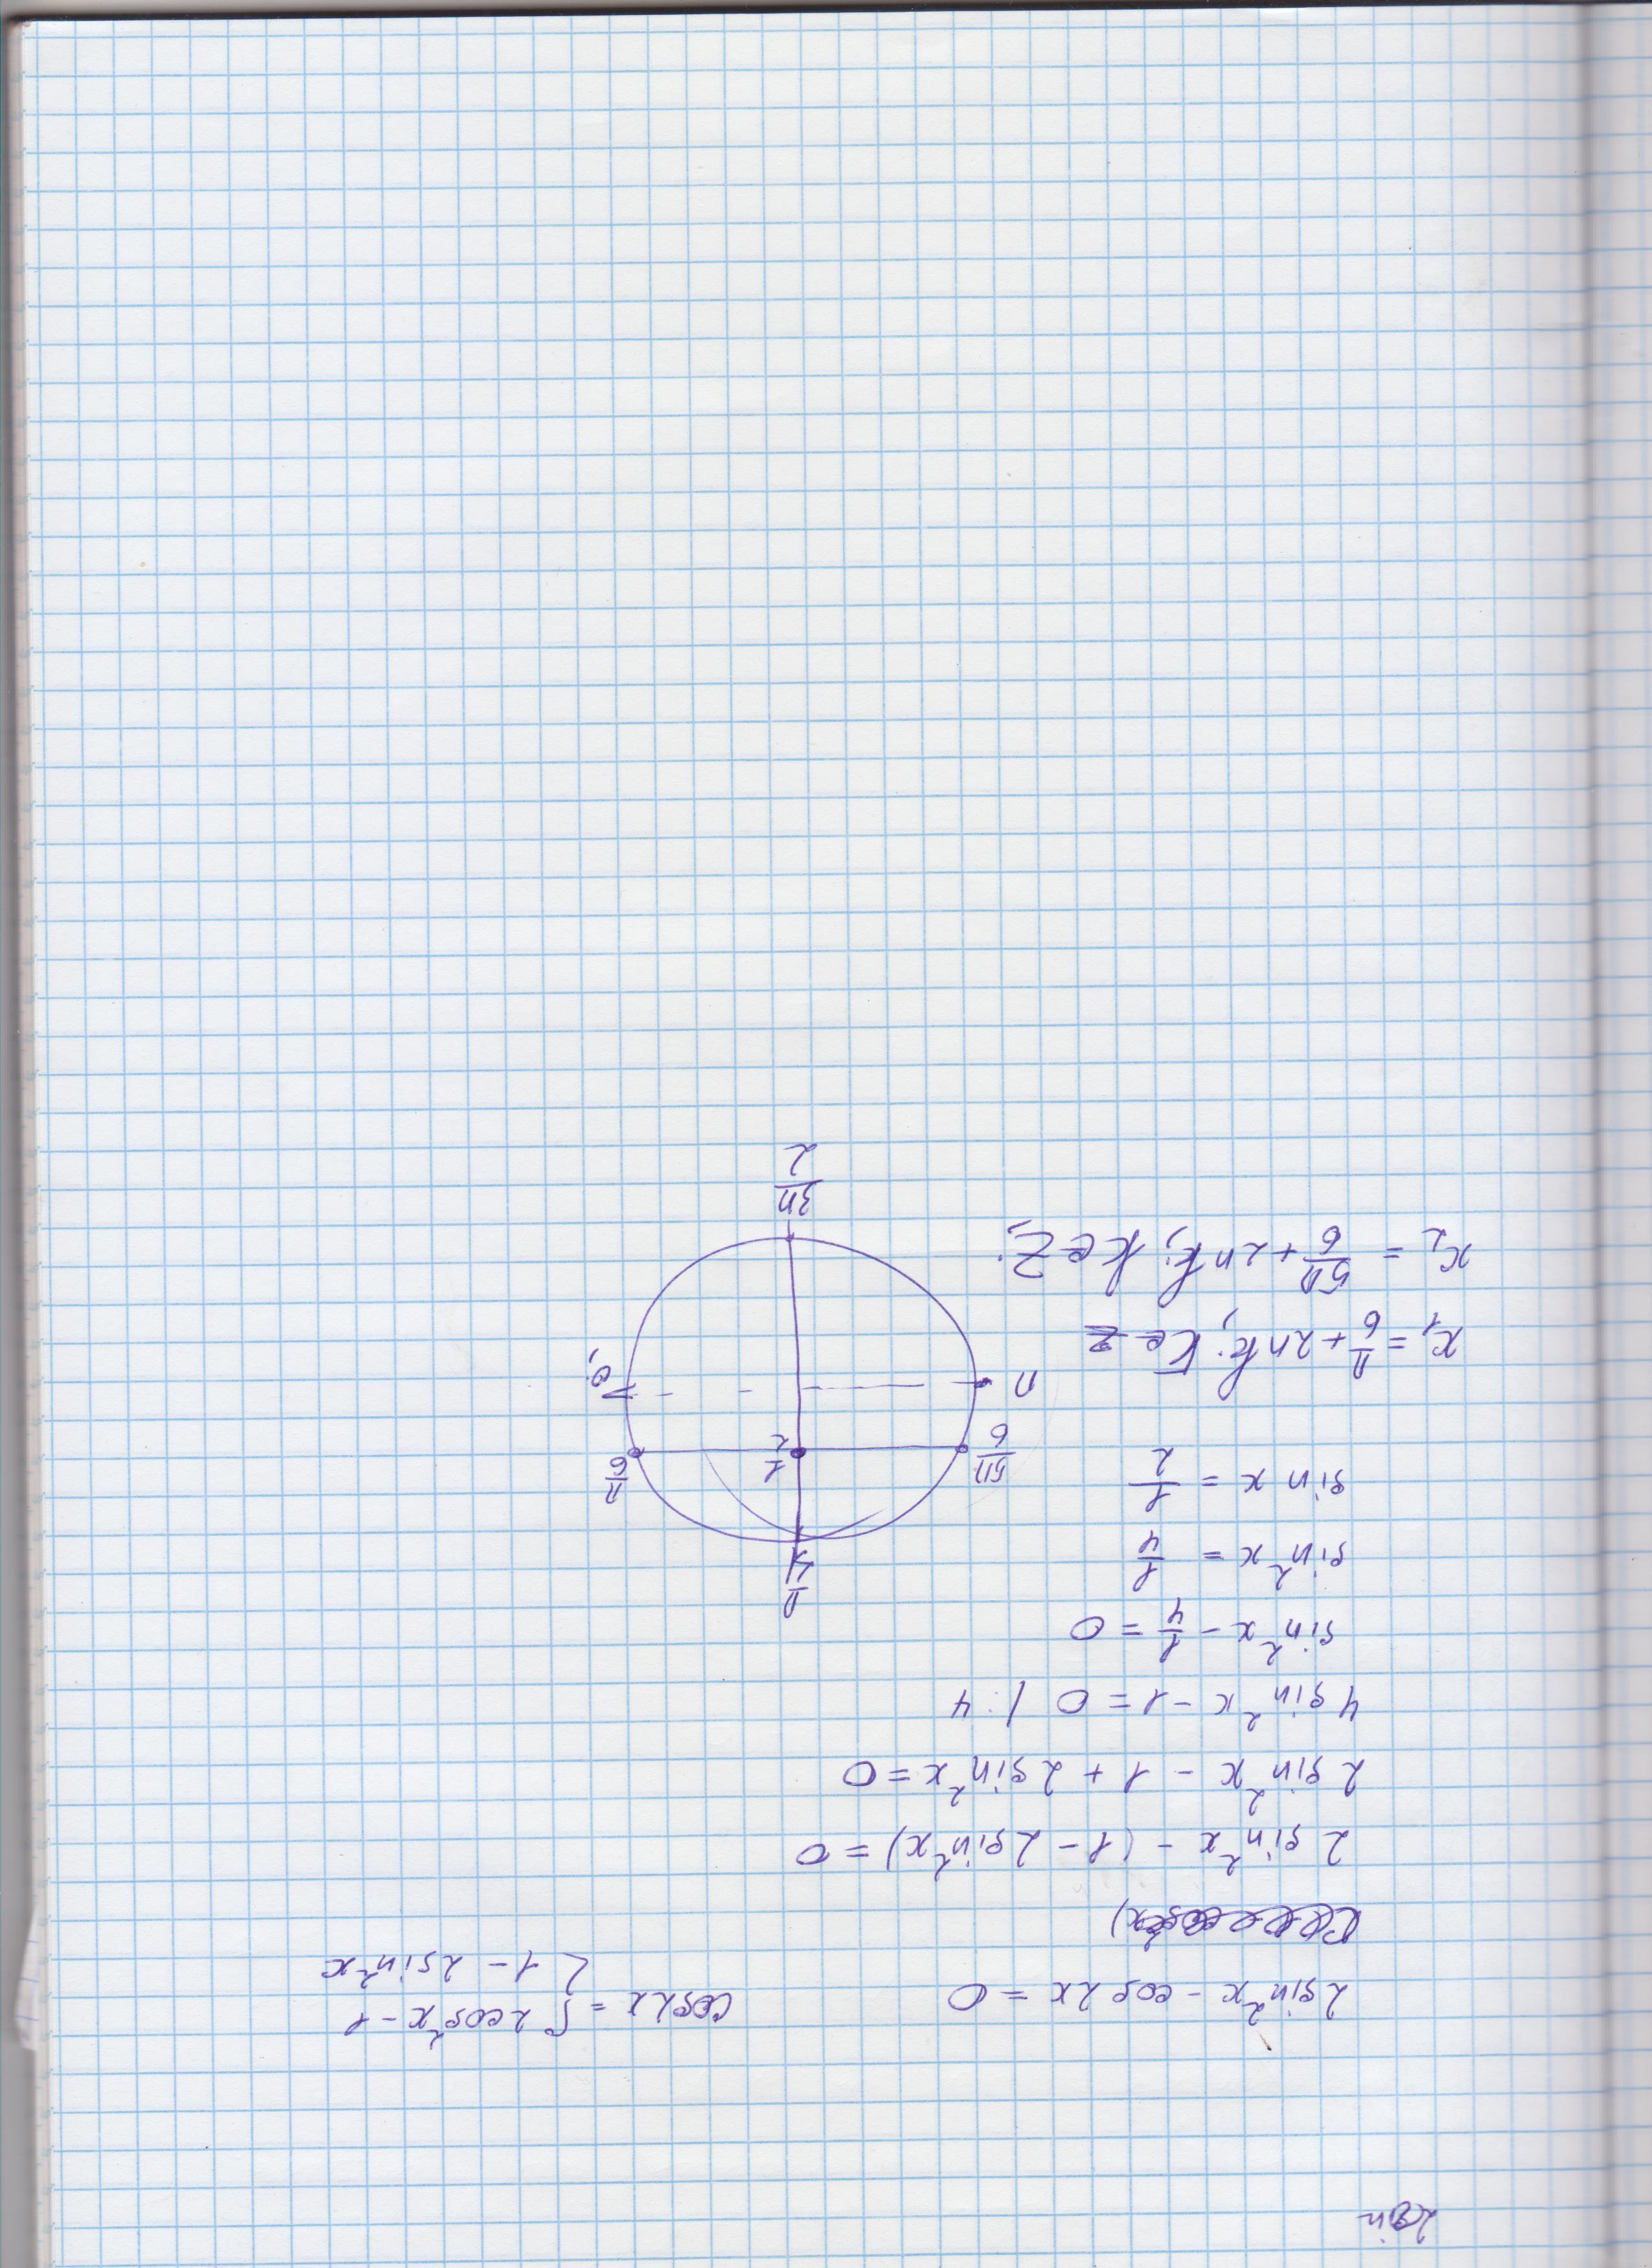 2sin
2 sin²x - cos 2x = 0
cos2x = { 2cos²x - 1
1 - 2sin²x
2 sin²x - (1 - 2sin²x) = 0
2 sin²x - 1 + 2sin²x = 0
4 sin²x - 1 = 0 / : 4
sin²x - 1/4 = 0
sin²x = 1/4
sin x = 1/2
x₁ = π/6 + 2πk; k ∈ Z
x₂ = 5π/6 + 2πk; k ∈ Z;
π/2
5π/6
1/2
π/6
π
0;
3π/2